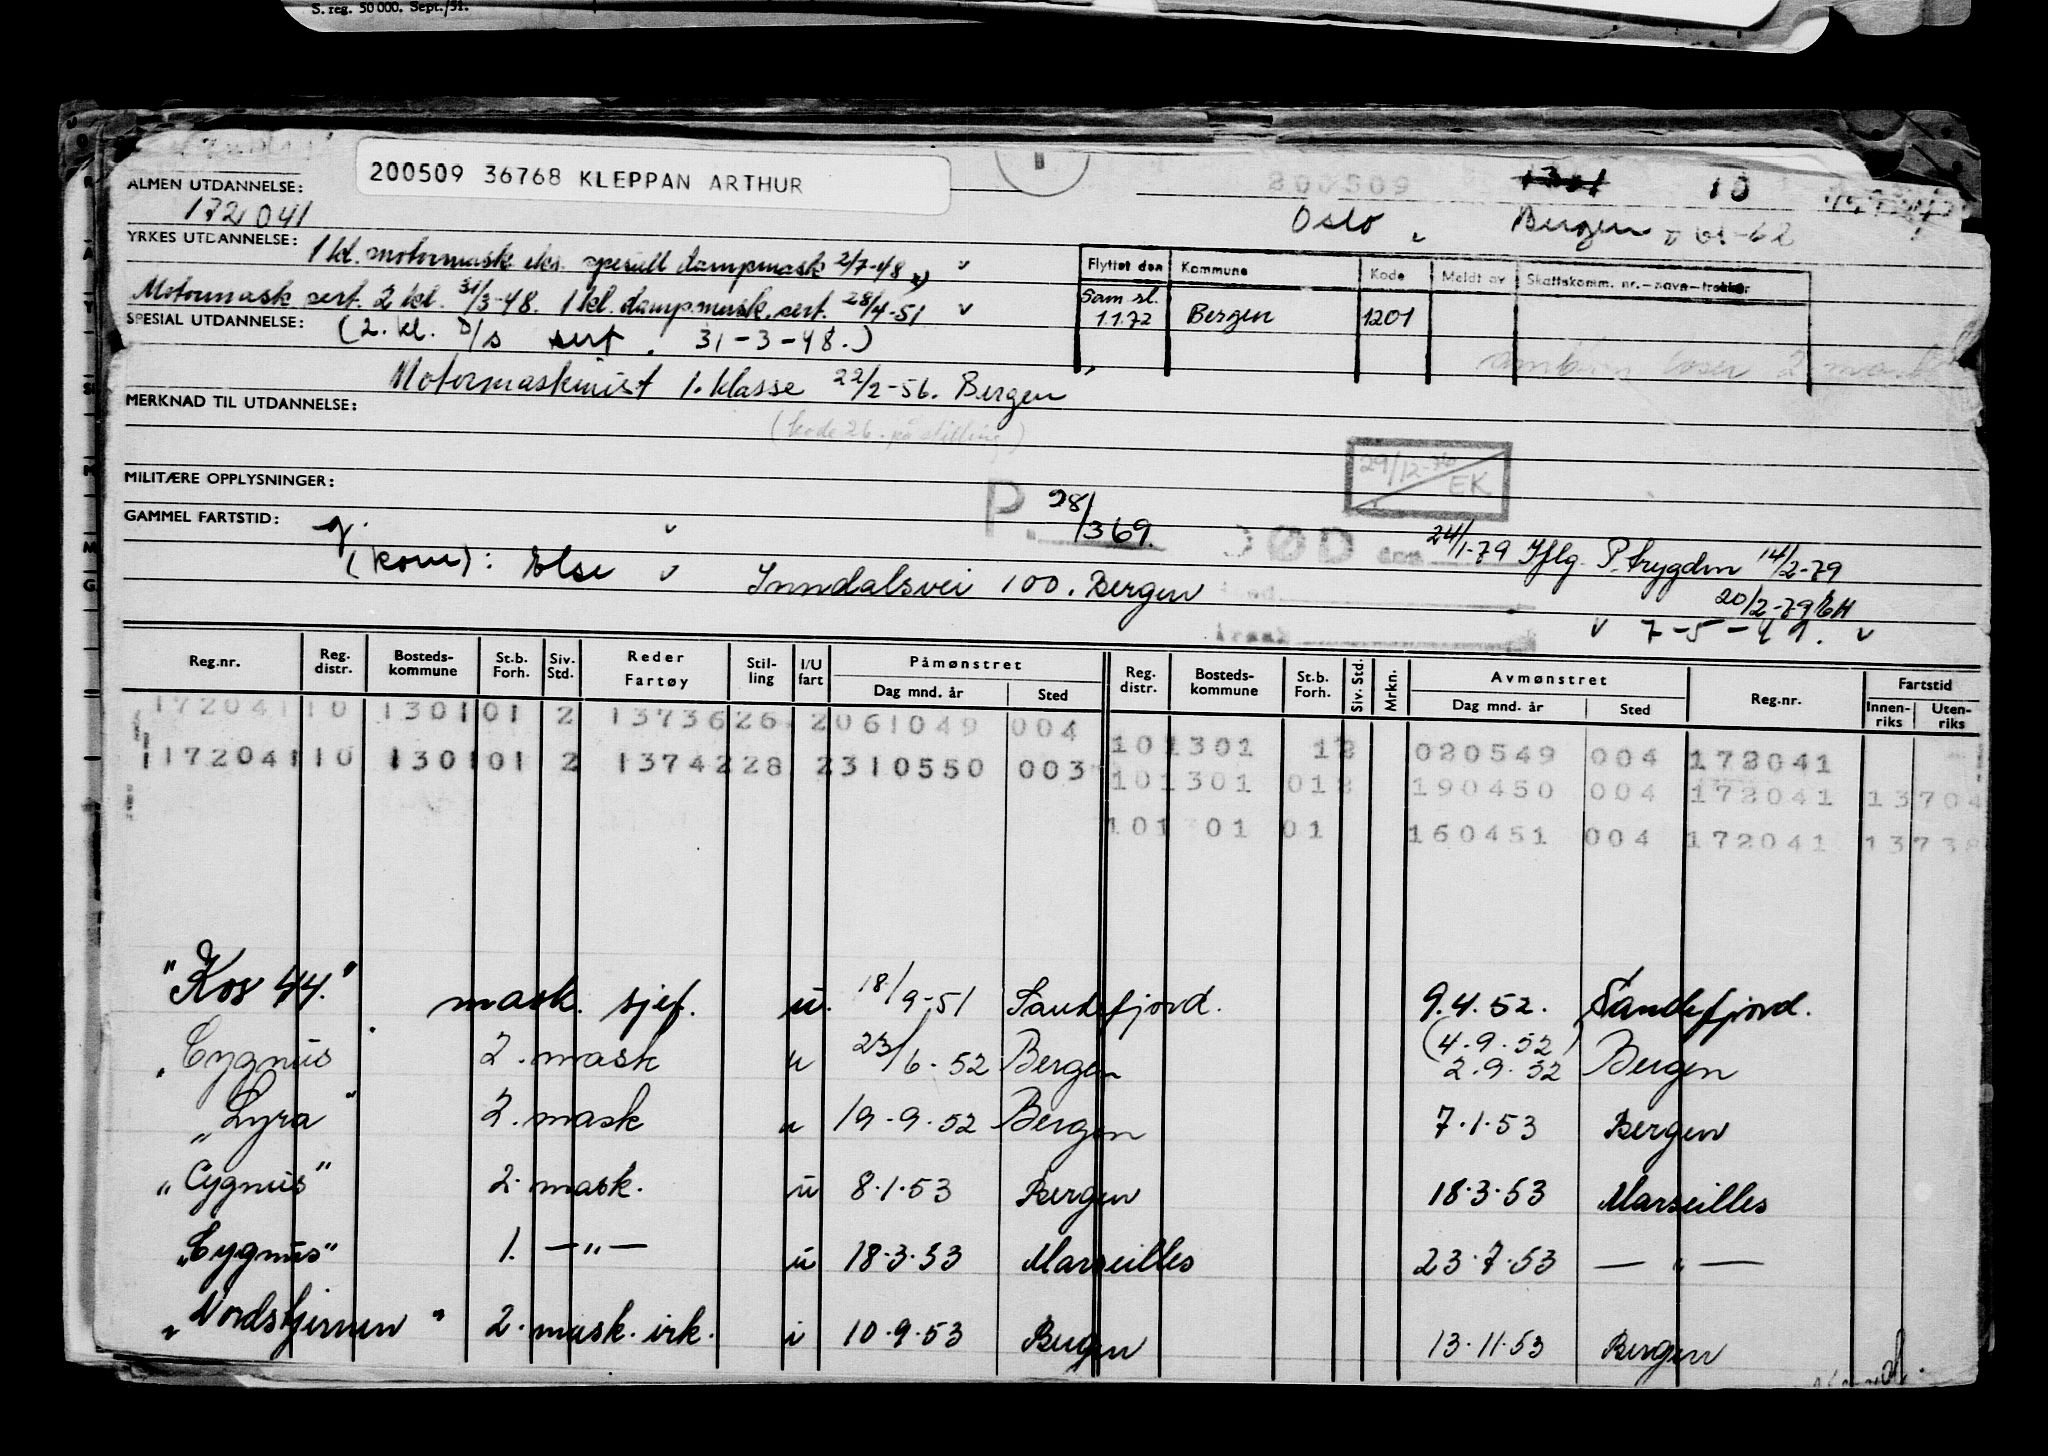 S. reg. 50 000. Sept./51.
200509 36768 KLEPPAN ARTHUR
ALMEN UTDANNELSE:
172041
200509 1301 10
Oslo Bergen
YRKES UTDANNELSE: 1 kl. motormask eks. spesiell dampmask 2/7-48
Motormask sert. 2 kl. 31/3-48. 1 kl. dampmask. sert. 28/4-51
SPESIAL UTDANNELSE: (2. kl. D/s sert. 31-3-48.)
Motormaskinist 1. klasse 22/2-56. Bergen
Flyttet den Kommune Kode Meldt av Skattskomm. nr.-navn-trekker
Sam sl.
1.1.72 Bergen 1201
MERKNAD TIL UTDANNELSE:
(kode 26. på stilling)
29/12- EK
MILITÆRE OPPLYSNINGER:
P. 28/369.
GAMMEL FARTSTID: g.
DØD den 24/1-79 Iflg. P. trygden 14/2-79
(kone): Else Inndalsvei 100. Bergen
20/2-79
7-5-49.
Reg.nr. Reg. distr. Bosteds-kommune St.b. Forh. Siv. Std. Reder Fartøy Stil-ling I/U fart Påmønstret Dag mnd. år Sted Reg. distr. Bosteds-kommune St.b. Forh. Siv. Std. Mrkn. Avmønstret Dag mnd. år Sted Reg.nr. Fartstid Innen-riks Uten-riks
172041 10 1301 01 2 13736 26 2 061049 004
101301 12 020549 004 172041
172041 10 1301 01 2 13742 28 2 310550 003
101301 012 190450 004 172041 13704
101 01 01 160451 004 172041 13738
"Kos 44." mask. sjef. u. 18/9-51 Sandefjord. 9.4.52. Sandefjord.
"Cygnus 2. mask u 23/6-52 Bergen (4.9.52) 2.9.52 Bergen
"Lyra" 2. mask u 19-9.52 Bergen 7.1.53 Bergen
"Cygnus" 2. mask. u 8.1.53 Bergen 18.3.53 Marseilles
"Cygnus" 1. —"— u 18.3.53 Marseilles 23.7.53 —"—
"Nordstjernen" 2. mask. irk. i 10.9.53 Bergen 13.11.53 Bergen